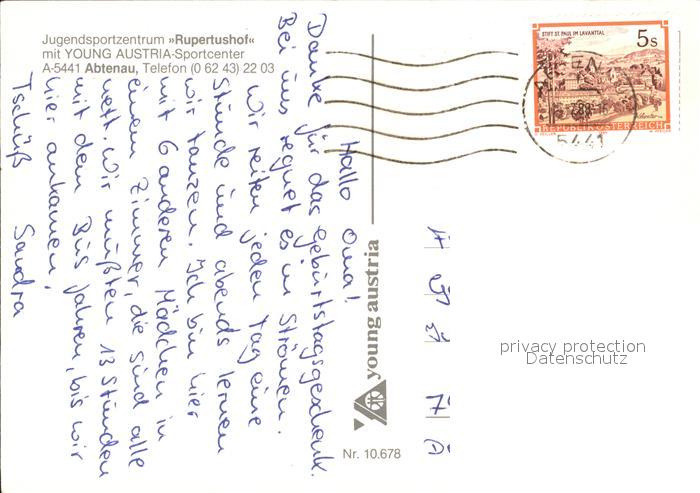 Jugendsportzentrum »Rupertushof«
mit YOUNG AUSTRIA-Sportcenter
A-5441 Abtenau, Telefon (0 62 43) 22 03
Hallo Oma!
Danke für das Geburtstagsgeschenk.
Bei uns regnet es in Strömen.
Wir reiten jeden Tag eine
Stunde und abends lernen
wir tanzen. Ich bin hier
mit 6 anderen Mädchen in
einem Zimmer, die sind alle
nett. Wir mußten 13 Stunden
mit dem Bus fahren, bis wir
hier ankamen.
Tschüß Sandra
young austria
Nr. 10.678
STIFT ST. PAUL IM LAVANTTAL
5 S
REPUBLIK ÖSTERREICH
5441
privacy protection
Datenschutz